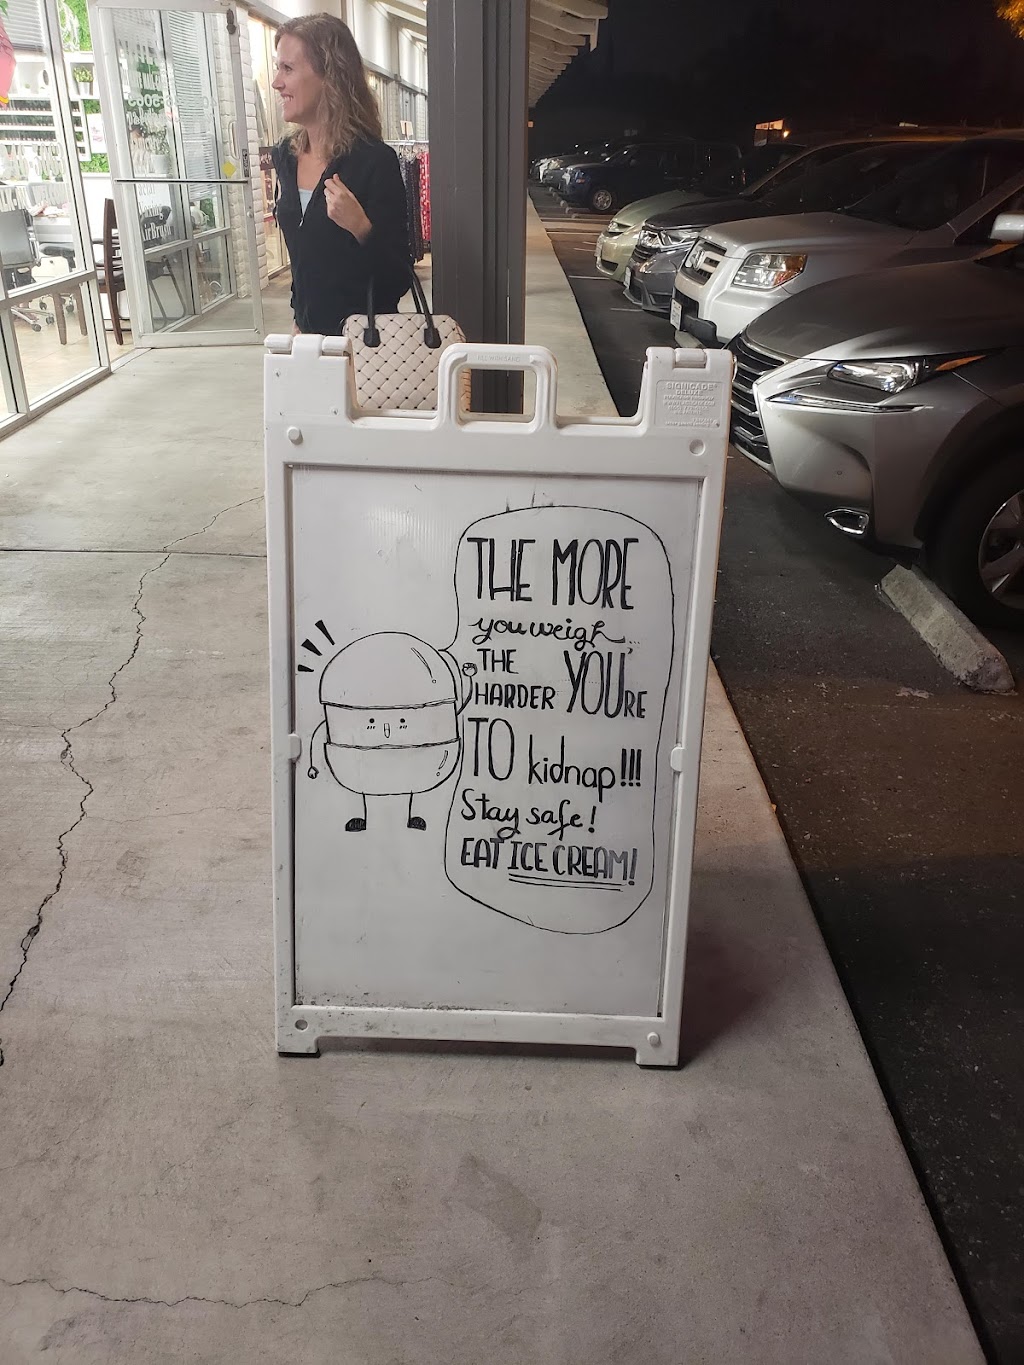 SIGNICADE
DELUXE
THE MORE
you weigh,
THE
HARDER YOU'RE
TO kidnap!!!
Stay safe!
EAT ICE CREAM!